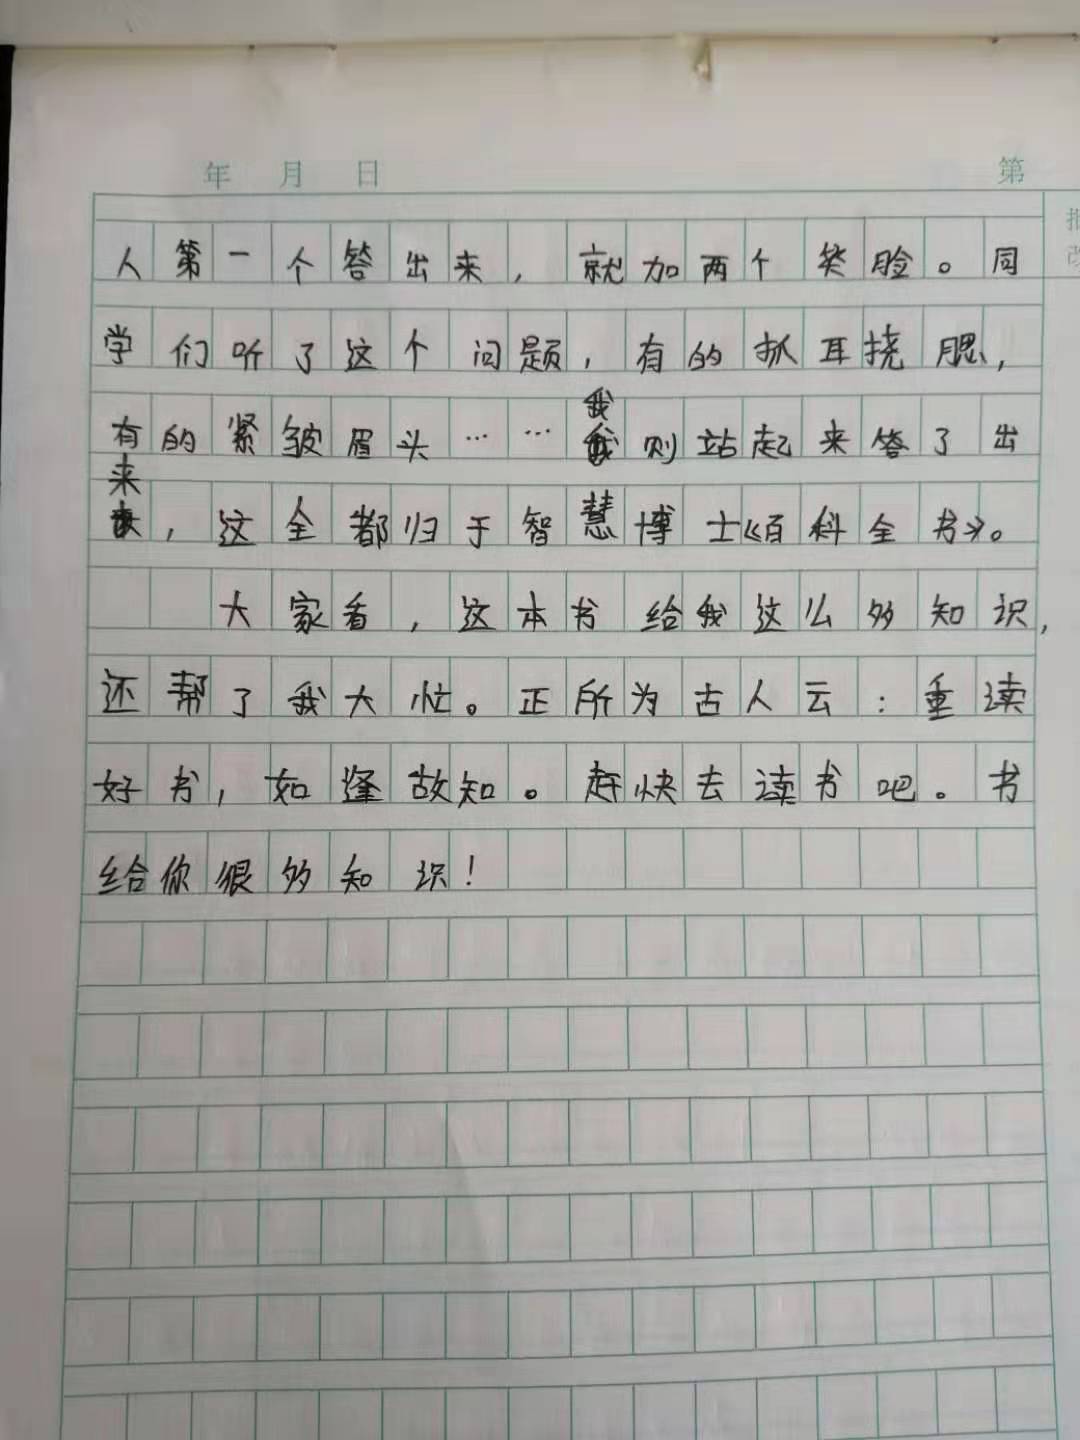 年 月 日 第
批
改
人第一个答出来，就加两个笑脸。同
学们听了这个问题，有的抓耳挠腮，
有的紧皱眉头……我则站起来答了出
来，这全都归于智慧博士《百科全书》。
大家看，这本书给我这么多知识，
还帮了我大忙。正所为古人云：重读
好书，如逢故知。赶快去读书吧。书
给你很多知识！